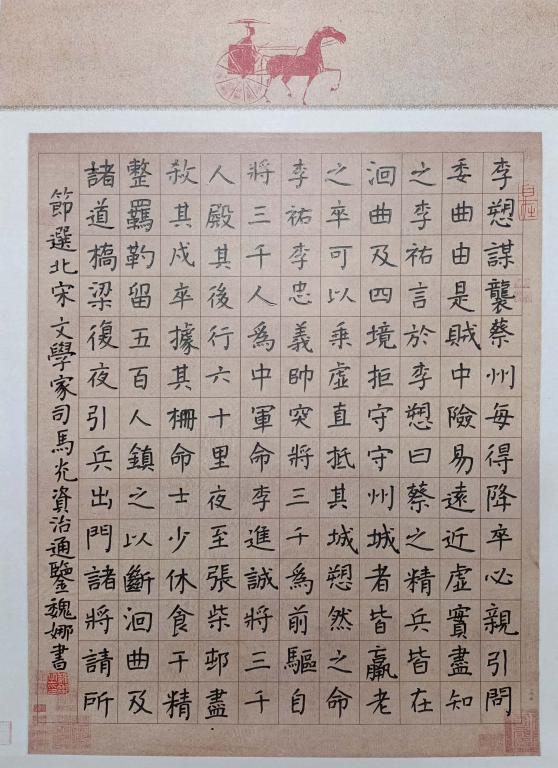 李愬謀襲蔡州每得降卒必親引問
委曲由是賊中險易遠近虛實盡知
之李祐言於李愬曰蔡之精兵皆在
洄曲及四境拒守守州城者皆羸老
之卒可以乘虛直抵其城愬然之命
李祐李忠義帥突將三千爲前驅自
將三千人爲中軍命李進誠將三千
人殿其後行六十里夜至張柴邨盡
殺其戍卒據其柵命士少休食干精
整羈靮留五百人鎮之以斷洄曲及
諸道橋梁復夜引兵出門諸將請所
節選北宋文學家司馬光資治通鑒魏娜書
自在